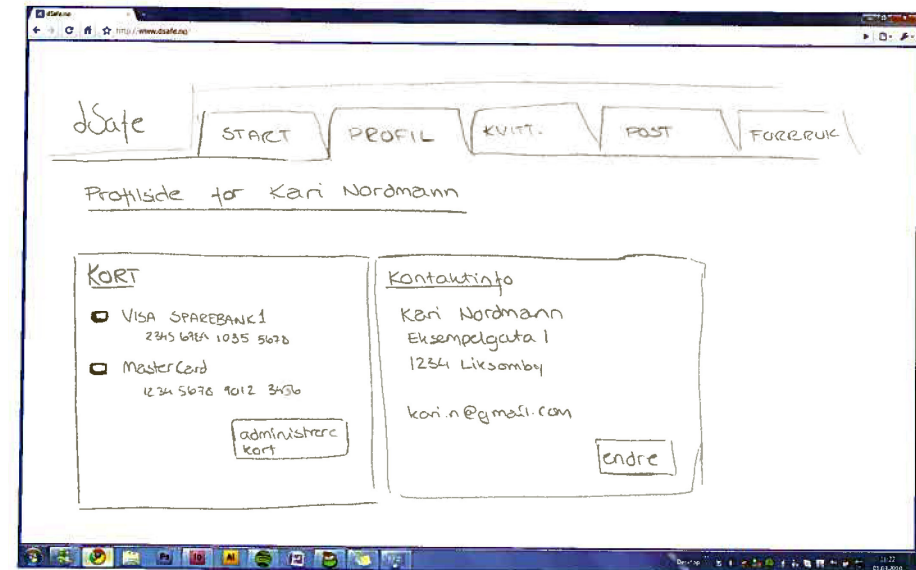 dSafe.no
http://www.dsafe.no
dSafe
START
PROFIL
KVITT.
POST
FORRBRUK
Profilside for Kari Nordmann
KORT
VISA SPAREBANK1
1035 5678
MasterCard
1234 5678 9012 3456
administrere
kort
Kontaktinfo
Kari Nordmann
Eksempelgata 1
1234 Liksomby
kari.n@gmail.com
endre
Ps
ID
AI
Desktop